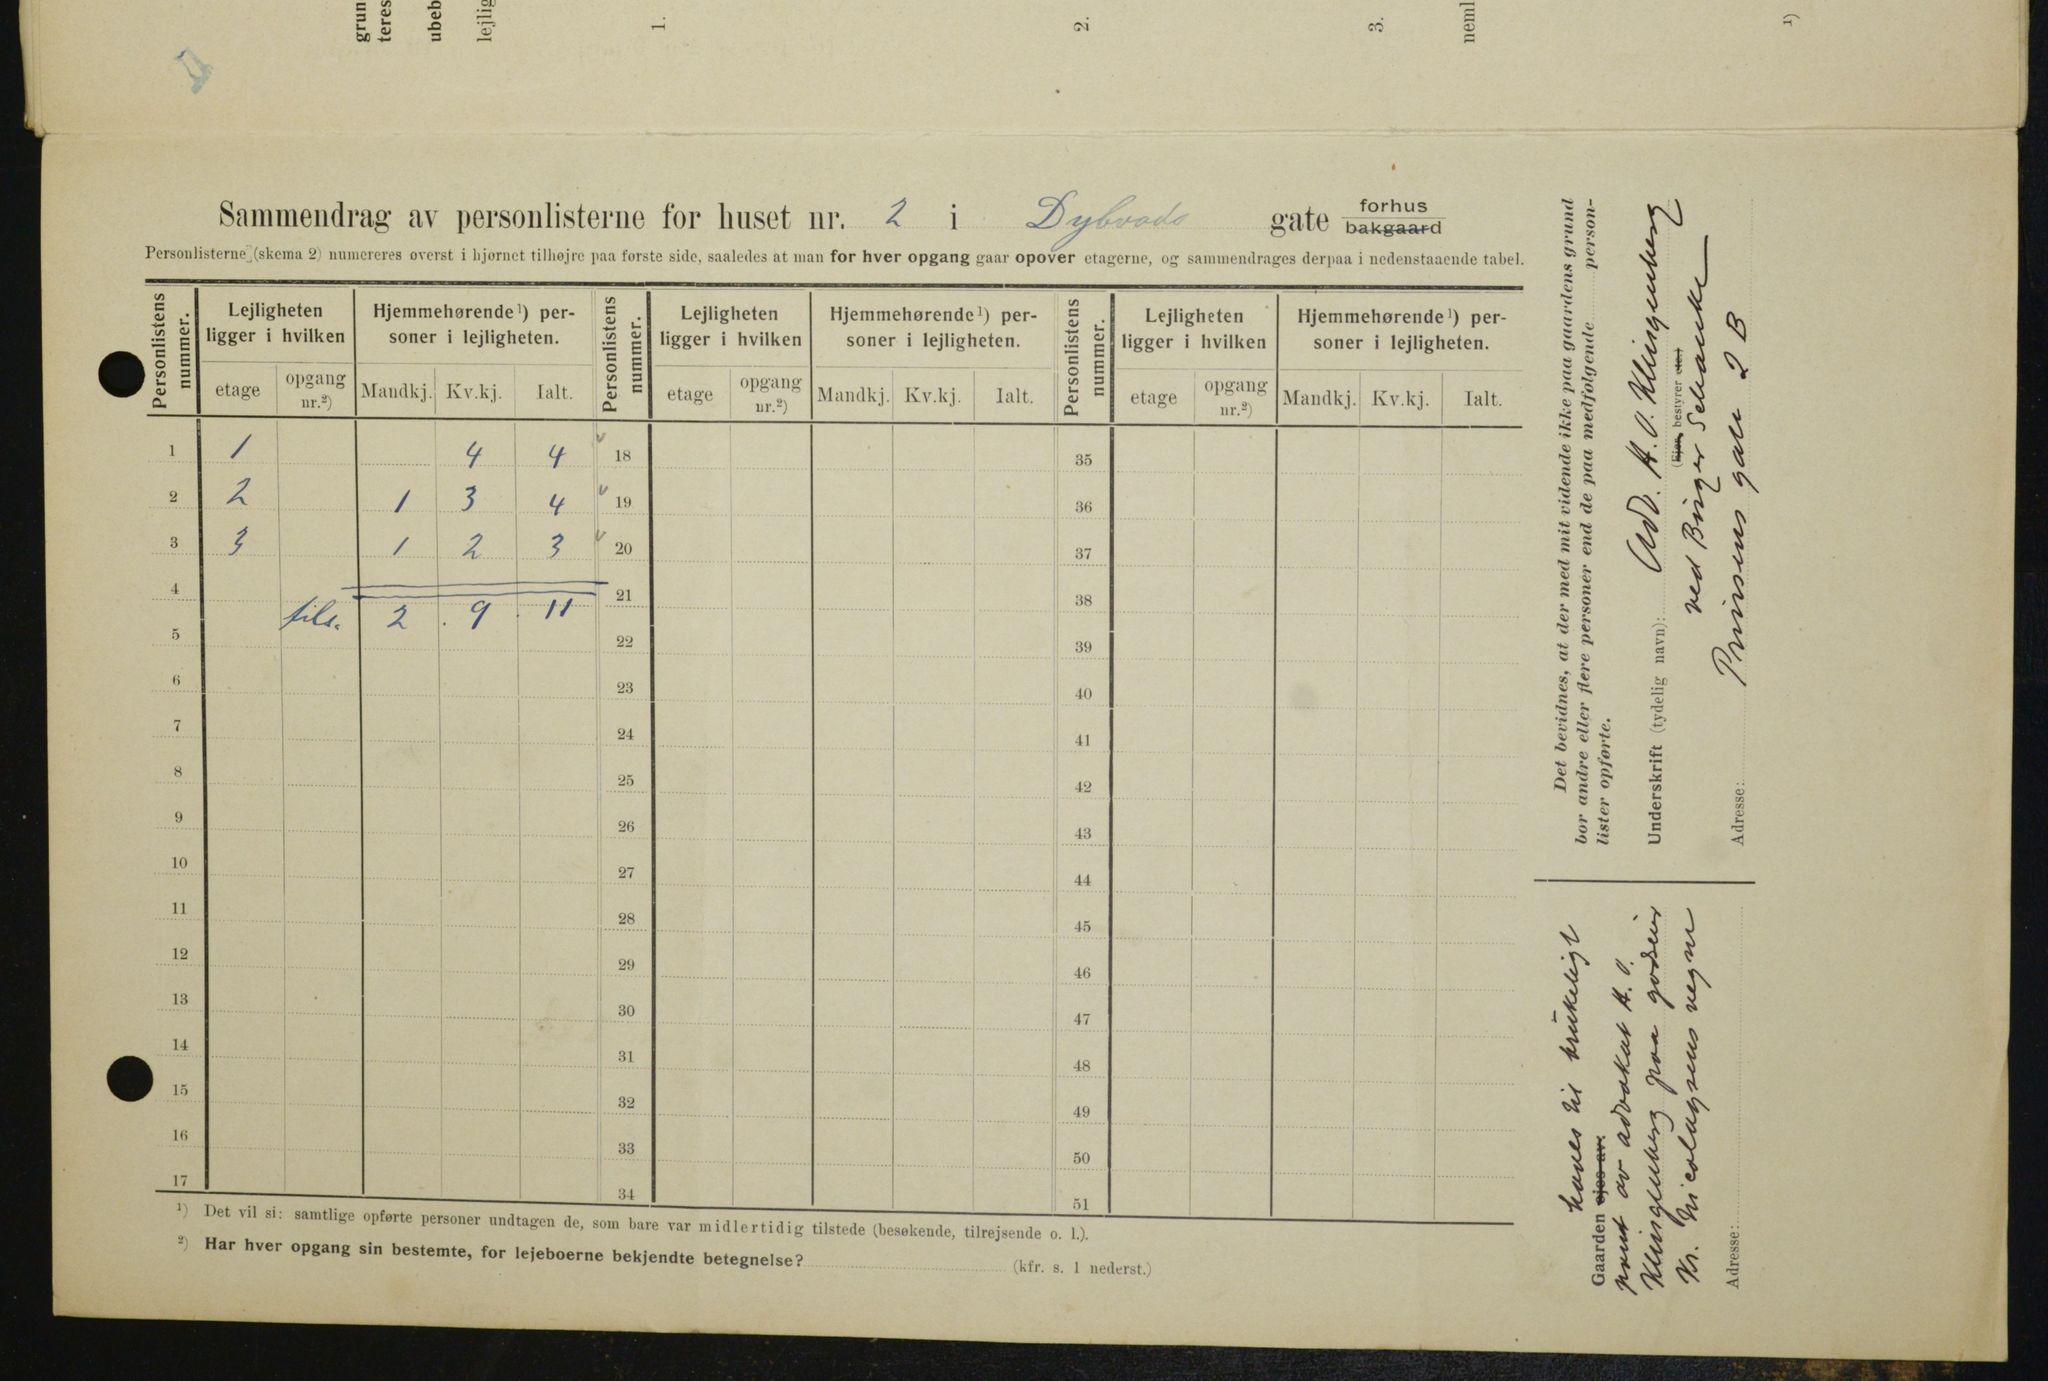 grun
teres
ubeb
lejlig
1.
2.
3.
neml
1)
Sammendrag av personlisterne for huset nr. 2 i Dybvads gate forhus
bakgaard
Personlisterne (skema 2) numereres øverst i hjørnet tilhøjre paa første side, saaledes at man for hver opgang gaar opover etagerne, og sammendrages derpaa i nedenstaaende tabel.
Personlistens nummer. Lejligheten ligger i hvilken Hjemmehørende¹) personer i lejligheten. Personlistens nummer. Lejligheten ligger i hvilken Hjemmehørende¹) personer i lejligheten. Personlistens nummer. Lejligheten ligger i hvilken Hjemmehørende¹) personer i lejligheten.
etage opgang nr.²) Mandkj. Kv.kj. Ialt. etage opgang nr.²) Mandkj. Kv.kj. Ialt. etage opgang nr.²) Mandkj. Kv.kj. Ialt.
1 1 4 4 18 35
2 2 1 3 4 19 36
3 3 1 2 3 20 37
4 21 38
tils. 2 9 11
5 22 39
6 23 40
7 24 41
8 25 42
9 26 43
10 27 44
11 28 45
12 29 46
13 30 47
14 31 48
15 32 49
16 33 50
17 34 51
¹) Det vil si: samtlige opførte personer undtagen de, som bare var midlertidig tilstede (besøkende, tilrejsende o. l.).
²) Har hver opgang sin bestemte, for lejeboerne bekjendte betegnelse? (kfr. s. 1 nederst.)
Det bevidnes, at der med mit vidende ikke paa gaardens grund
bor andre eller flere personer end de paa medfølgende person-
lister opførte.
Underskrift (tydelig navn): Adv. H. O. Klingenberg
(Ejer, bestyrer etc.)
ved Birger Schanke
Adresse: Prinsens gate 2 B
haves til brukeligt
Gaarden ejes av:
pant av advokat H. O.
Klingenberg paa godseier
Kr. Nicolaysens vegne
Adresse: